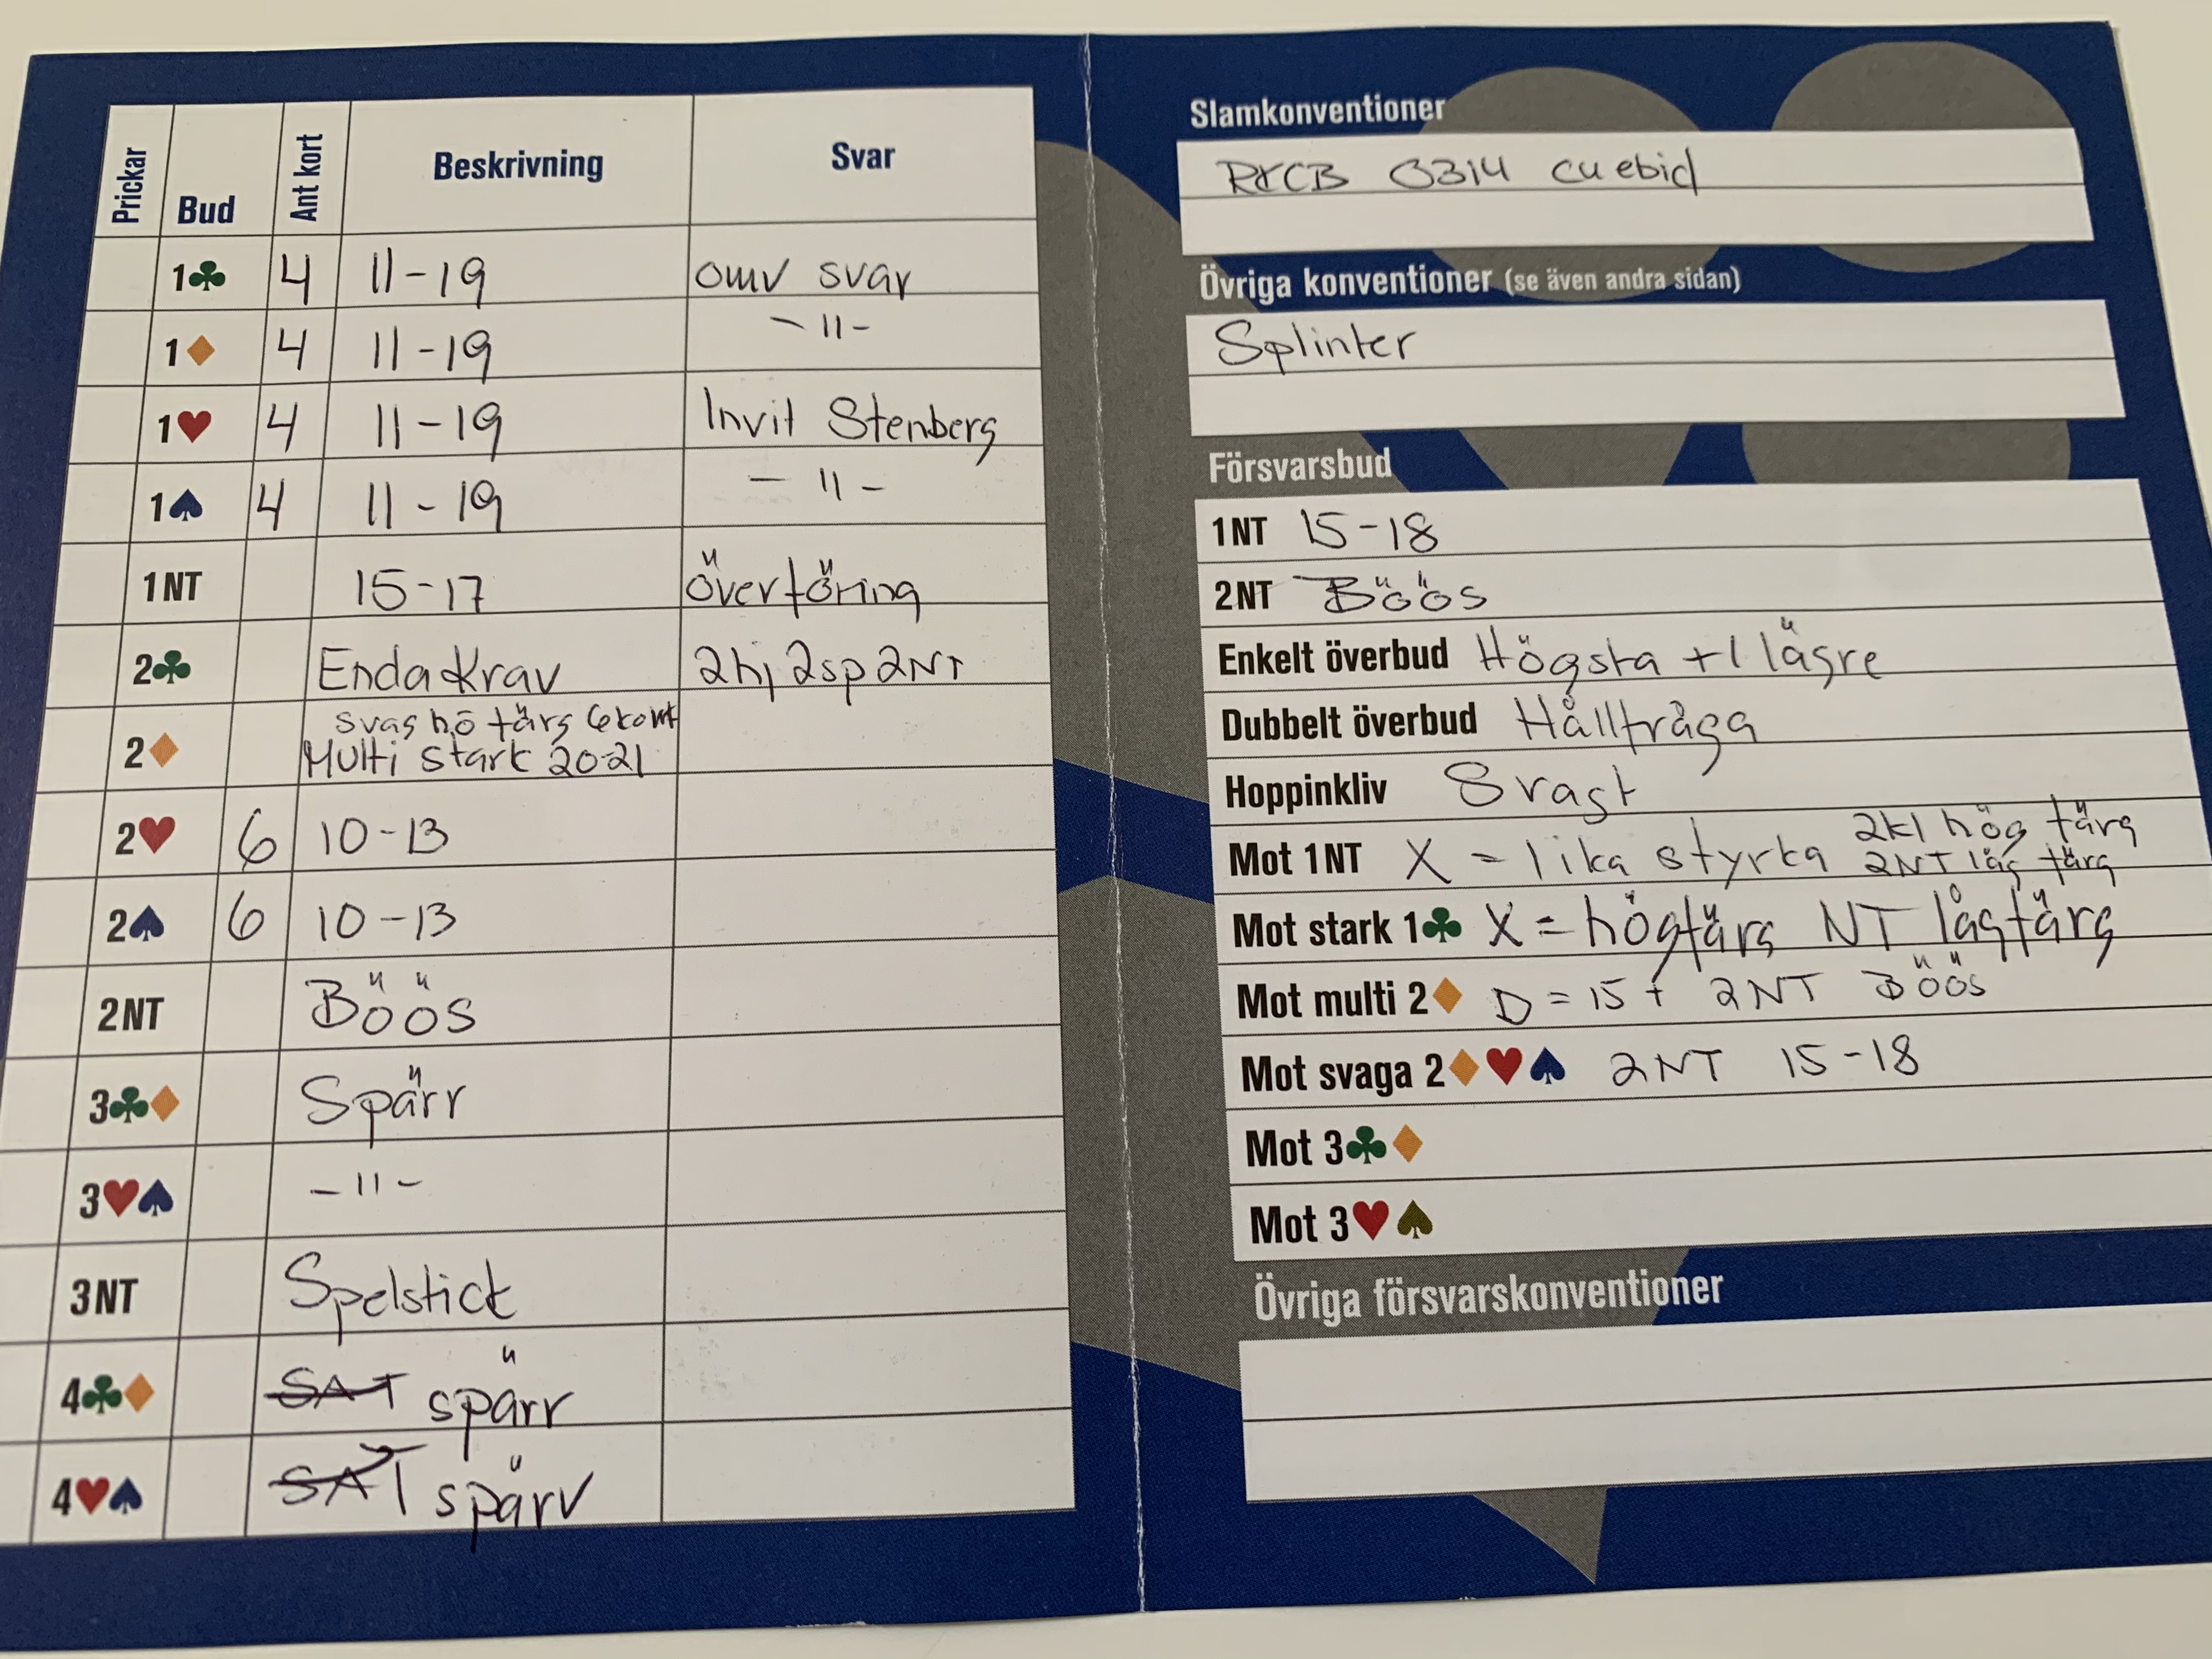 Prickar Bud Ant kort Beskrivning Svar
1♣ 4 11-19 omv svar
1♦ 4 11-19 -11-
1♥ 4 11-19 Invit Stenberg
1♠ 4 11-19 -11-
1NT 15-17 överföring
2♣ Enda Krav 2hj 2sp 2NT
svag hö färg 6kort
2♦ Multi stark 20-21
2♥ 6 10-13
2♠ 6 10-13
2NT Böös
3♣♦ Spärr
3♥♠ -11-
3NT Spelstick
4♣♦ SAT spärr
4♥♠ SAT spärr
Slamkonventioner
RKCB 0314 cuebid
Övriga konventioner (se även andra sidan)
Splinter
Försvarsbud
1NT 15-18
2NT Böös
Enkelt överbud Högsta +1 lägre
Dubbelt överbud Hållfråga
Hoppinkliv Svagt
Mot 1NT X = lika styrka 2kl hög färg
2NT låg färg
Mot stark 1♣ X = högfärg NT lågfärg
Mot multi 2♦ D = 15+ 2NT Böös
Mot svaga 2♦♥♠ 2NT 15-18
Mot 3♣♦
Mot 3♥♠
Övriga försvarskonventioner